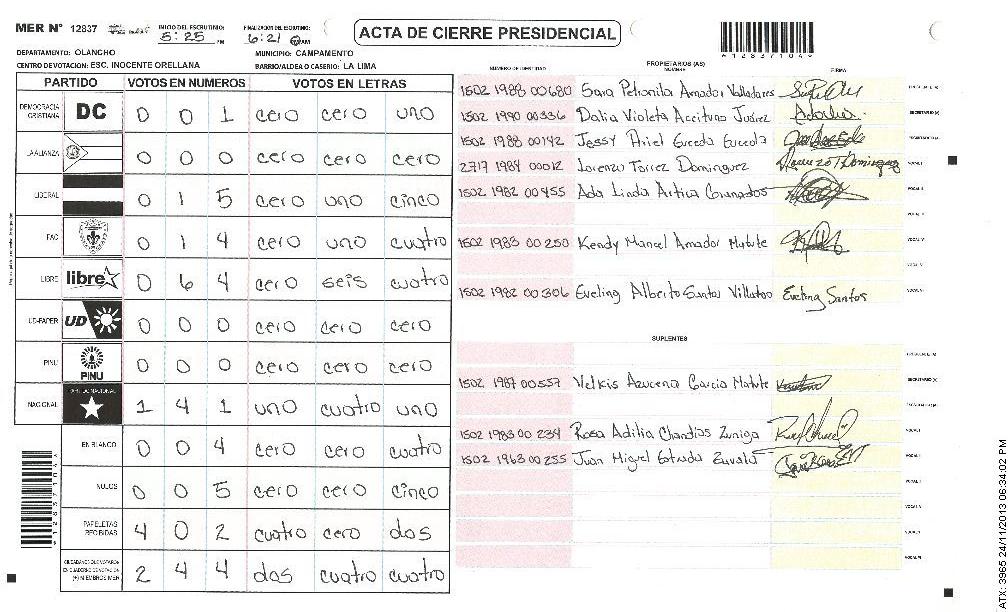 MER N° 12837 INICIO DEL ESCRUTINIO: 5:25 PM FINALIZACION DEL ESCRUTINIO: 6:21 AM ACTA DE CIERRE PRESIDENCIAL
*12837104*
DEPARTAMENTO: OLANCHO MUNICIPIO: CAMPAMENTO
CENTRO DE VOTACION: ESC. INOCENTE ORELLANA BARRIO/ALDEA O CASERIO: LA LIMA
PARTIDO VOTOS EN NUMEROS VOTOS EN LETRAS
DEMOCRACIA CRISTIANA DC 0 0 1 cero cero uno
LA ALIANZA 0 0 0 cero cero cero
LIBERAL 0 1 5 cero uno cinco
FAC 0 1 4 cero uno cuatro
LIBRE libre 0 6 4 cero seis cuatro
UD-FAPER UD 0 0 0 cero cero cero
PINU PINU 0 0 0 cero cero cero
NACIONAL PARTIDO NACIONAL 1 4 1 uno cuatro uno
EN BLANCO 0 0 4 cero cero cuatro
NULOS 0 0 5 cero cero cinco
PAPELETAS RECIBIDAS 4 0 2 cuatro cero dos
CIUDADANOS QUE VOTARON EN CUADERNO DE VOTACION (+) MIEMBROS MER 2 4 4 dos cuatro cuatro
PROPIETARIOS (AS)
NUMERO DE IDENTIDAD NOMBRE FIRMA
1502 1988 00680 Sara Petronila Amador Valladares PRESIDENTE (A)
1502 1990 00336 Dalia Violeta Accituno Juárez SECRETARIO (A)
1502 1988 00142 Jessy Ariel Euceda Euceda ESCRUTADOR (A)
2717 1984 00012 Lorenzo Torrez Dominguez VOCAL I
1502 1982 00455 Ada Linda Artica Granados VOCAL II
1502 1983 00250 Kendy Marcel Amador Matute VOCAL IV
1502 1982 00306 Eveling Alberto Santos Eveling Santos VOCAL VI
SUPLENTES
PRESIDENTE (A)
1502 1987 00557 Velkis Azucena Garcia Matute SECRETARIO (A)
ESCRUTADOR (A)
1502 1983 00234 Rosa Adilia Zuniga VOCAL I
1502 1963 00255 Juan Miguel Estrada VOCAL II
ATX: 3965 24/11/2013 06:34:02 PM